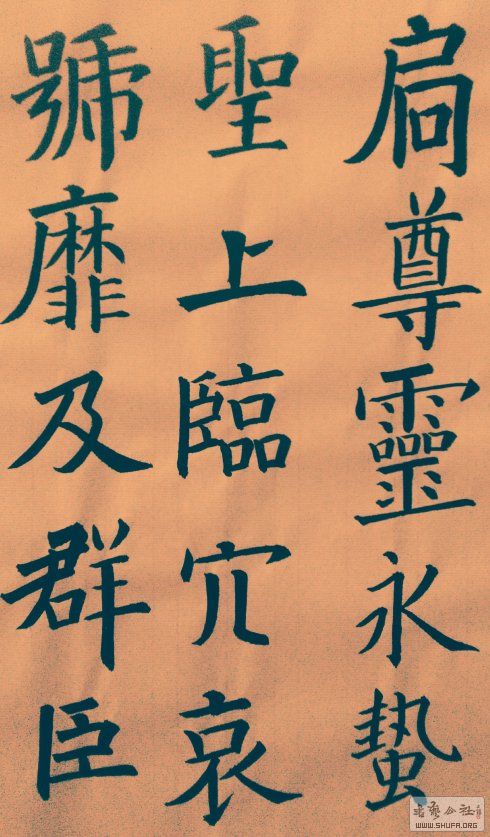 扃尊靈永蟄
聖上臨穴哀
號靡及群臣
WWW.SHUFA.ORG